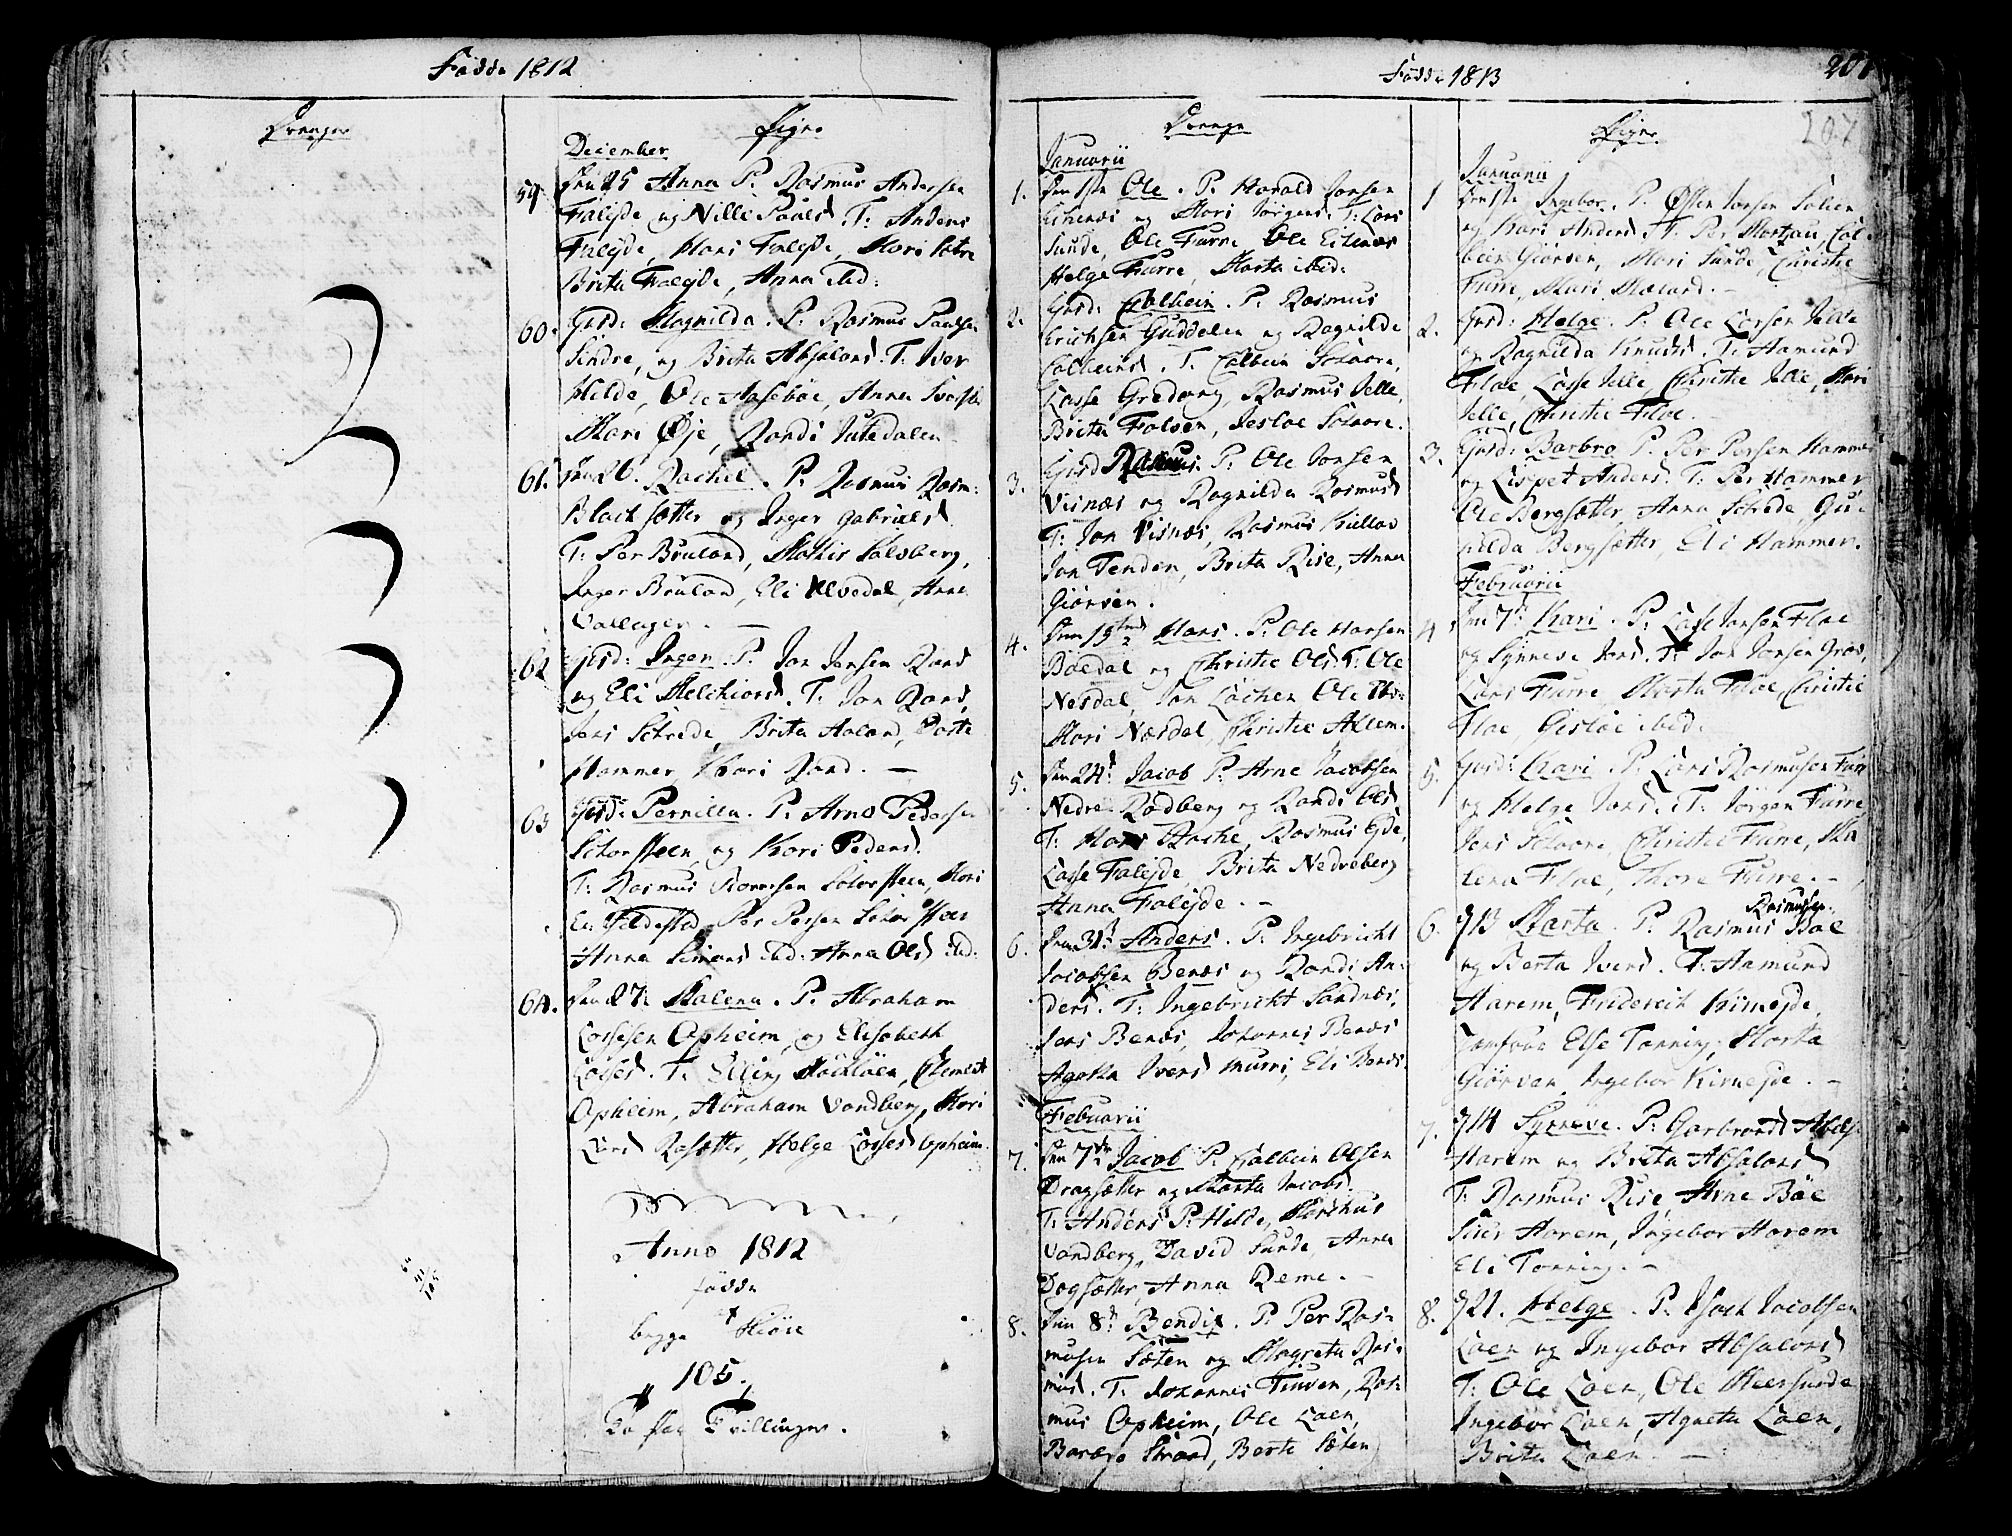 Födde 1812
Drenge
Pige
December
59. Den 25 Anna P. Rasmus Andersen
Faleide og Nille Pauls T: Anders
Faleide, Hans Faleide, Mari
Brita Faleide, Anna ibid:
60. Eod: Magnilda. P. Rasmus Paulsen
Sindre, og Brita Absalons. T: Iver
Hilde, Ole Aaseböe, Anna
Mari Øje, Randi Tutedalen
61. Den 26. Rachel. P. Rasmus Rasm:
Blacksætter og Inger Gabriels
T: Per Bruland, Solsberg,
Inger Bruland, Eli Alvedal, Anna
62 Eod: Inger. P. Jon Jensen Rand
og Eli Melchiors. T: Jon Rand,
Jens Schrede, Brita Aaland, Dorte
Hammer, Kari Rand. —
63 Eod: Pernilla. P. Arne Pedersen
Schorsteen, og Kari Peders.
T: Rasmus Schorsteen, Mari
Per Persen Schorsteen
Anna Simons ibd: Anna Ols ibd:
64. Den 27: Malena. P. Abraham
Lassesen Opheim, og Elisabeth
Lasses. T. Elling Clemet
Opheim, Abraham Vandberg, Mari
Lars Rasætter, Helge Lasses Opheim.
64
41
105
Anno 1812
födde
af
begge Kiön
105.
To par Tvillinger.
Födde 1813
207
207
Drenge
Januarii
1. Den 1ste Ole. P. Harald Jonsen
Eitenæs og Mari Jörgens. T: Lars
Sunde, Ole Furre, Ole Eitenæs
Helge Furre, Marta ibid:
2. Eod: Colbein. P. Rasmus
Erichsen Guddalen og Ragnilde
Colbeins. T. Colbein Schaare,
Lasse Gredung, Rasmus Jelle,
Brita Folven, Schaare.
3. Eod Rasmus. P: Ole Jonsen
Visnæs og Ragnilda Rasmus
T: Jon Visnæs, Rasmus
Jon Tenden, Brita Rise, Anna
Giörven.
4. Den 19de Hans. P: Ole Hansen
Böedal og Christie Ols. T: Ole
Nesdal, Jon Lachen Ole ibd:
Mari Næsdal, Christie Allem.
5. Den 24: Jacob P: Arne Jacobsen
Nedre Rödberg og Randi Ols
T: Hans Rasmus Ejde,
Lasse Faleide, Brita Nedreberg
Anna Faleide. —
6. Den 31t Anders. P. Ingebricht
Jacobsen Benæs og Randi An:
ders. T: Ingebricht Sandnæs,
Jens Benæs, Johannes Benæs
Agatha Ivers Muri, Eli Benæs.
Februarii
7. Den 7de Jacob P. Colbein Olsen
Dragsætter og Marta Jacobs.
T: Anders P: Hilde, Marchus
Vandberg, David Sunde, Anna
Dagsætter, Anna Reme. —
8. Den 8de Bendix. P. Per Ras:
musen Sæten og Magreta Ras:
mus. T. Johannes Tinven, Ras:
mus Opheim, Ole Loen,
Barbro Straad, Berte Sæten
Pige
Januarii
1 Den 1ste Ingebor. P. Østen Jonsen Solien
og Kari Anders T: Per Mortzau, Col
bein Giörven, Mari Sunde, Christie
Furre, Mari —
2. Eod: Helge. P. Ole Larsen Jelle
og Ragnilda Knuds. T: Aamund
Flae, Lasse Jelle, Christie Jelle, Mari
Jelle, Christie Floe.
3. Eod: Barbro P. Per Persen Hammer
og Lispet Anders. T: Per Hammer
Ole Bergsætter, Anna Schrede, Gun
nilda Bergsætter, Eli Hammer.
Februarii
4 Den 7: Kari. P: Lasse Jonsen Floe
og Synneve Jons. T: Jon Jonsen Gras,
Lars Furre, Marta Floe, Christie
Floe, Gislöe ibid:
5. Eod: Kari. P. Lars Rasmusen Furr
og Helge Jons. T: Jörgen Furre
Jens Schaare, Christie Furre, Ma
lena Floe, Thore Furre. —
Rasmusen
6. d 13 Marta. P. Rasmus Böe
og Berta Ivers. T: Aamund
Harem, Friderich Kirnejde,
Jomfrue Else Tonning, Marta
Giörven, Ingebor Kirnejde. —
7. d 14 Synneve. P: Garbrands Abels
Harem og Brita Absalons
T: Rasmus Rise, Arne Böe
Siur Harem, Ingebor Harem
Eli Tonning. —
8. d 21. Helge. P. Isach Jacobsen
Loen og Ingebor Absalons
T: Ole Loen, Ole Meersunde
Ingebor Loen, Agneta Loen,
Brita Loen. —